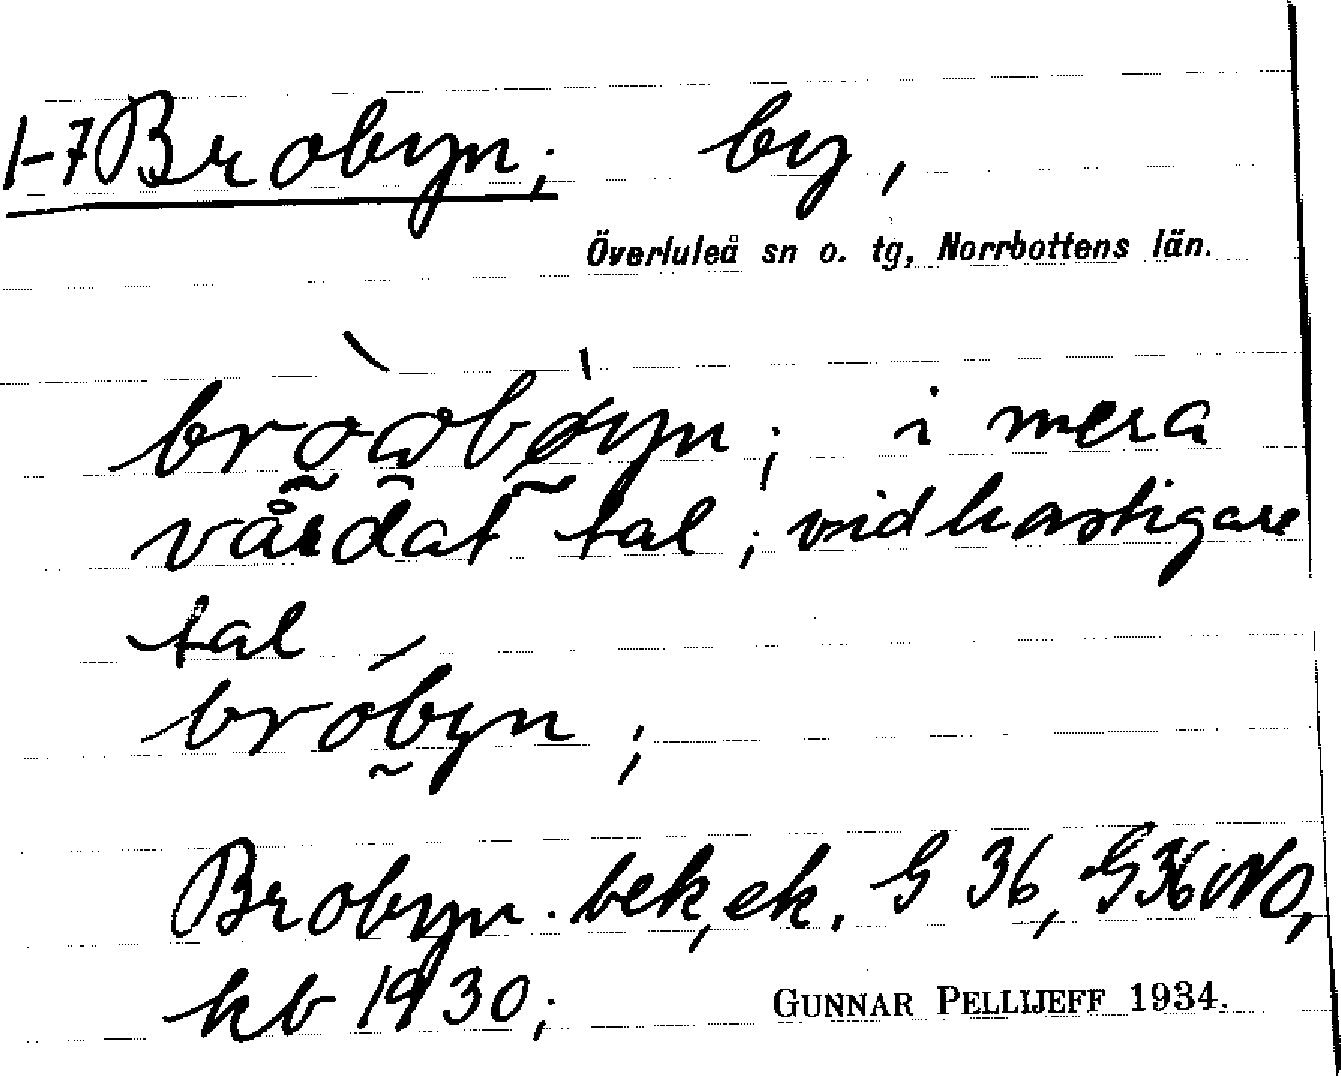 1-7 Brobyn; by,
Överluleå sn o. tg, Norrbottens län.
i mera
vårdat tal; vid hastigare
tal
bróbyn;
Brobyn. bek, ek. G 36, G36 NO,
kb 1930;
GUNNAR PELLIJEFF 1934.